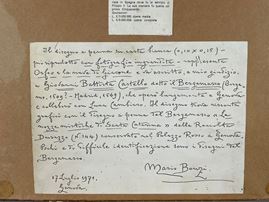 Il disegno a penna su carta bianca (0,10 x 0,18) -
più riprodotto con fotografia ingrandita - rappresenta
Orfeo e la moglie di
e va ascritto, a mio giudizio,
a Giovanni Battista Castello detto il Bergamasco (Berga-
mo, 1509 - Madrid, 1569), che operò lungamente a Genova
e collaborò con Luca Cambiaso. Il disegno trova riscontri
grafici con il disegno a penna del Bergamasco
Le nozze mistiche di Santa Caterina della Raccolta
Durazzo (N. 144) conservato nel Palazzo Rosso a Genova.
Pochi e di difficile identificazione sono i disegni del
Bergamasco.
Mario Bonzi
17 luglio 1971,
Genova